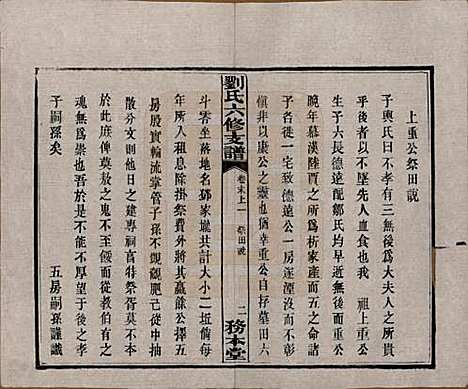 上重公祭田說
子輿氏曰不孝有三無後爲大夫人之所貴
乎後者以不墜先人血食也我　祖上重公
生子六長德達配鄒氏早與世辭父　公
晚年慕漢陸賈之風爲析家產而五之命六
子各徙一宅致德遠公一房逐湮沒而弗
傳非以康公之靈也猶幸重公自抒墓田六
斗零坐落地名鄧家壠共計大小二坵前每
年所入租息除掛祭費外以其贏餘公存五
房殷實輪流掌管子孫不觀覦肥己從中抽
散分文則他日之建專祠官特祭胥不本
於此庶俾莫敖之鬼不至於餒而伯有之
魂無爲祟也能不厚望于後之孝
子嗣孫矣
五房嗣孫謹識
劉氏六修支譜
卷末上一
祭田說
二
務本堂